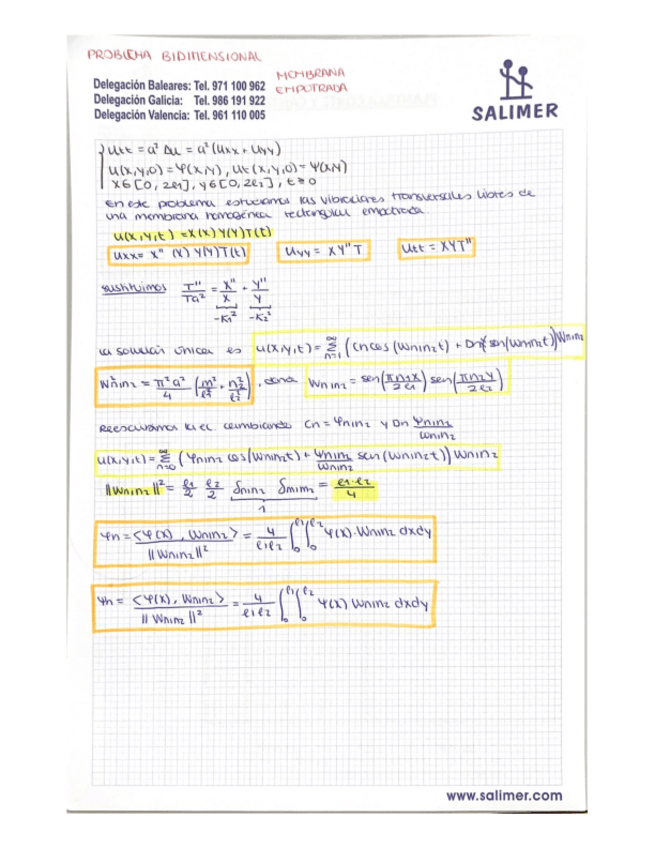 PROBLEMA BIDIMENSIONAL
MEMBRANA
EMPOTRADA
Delegación Baleares: Tel. 971 100 962
Delegación Galicia: Tel. 986 191 922
Delegación Valencia: Tel. 961 110 005
SALIMER
Utt = a² Δu = a² (Uxx + Uyy)
U(x,y,0) = φ(x,y), Ut(x,y,0) = ψ(x,y)
x∈[0, 2ℓ1], y∈[0, 2ℓ2], t≥0
En este problema estudiamos las vibraciones transversales libres de
una membrana homogénea rectangular empotrada.
U(x,y,t) = X(x) Y(y) T(t)
Uxx = X'' (x) Y(y) T(t) Uyy = XY''T Utt = XYT''
Sustituimos T''/Ta² = X''/X + Y''/Y
-K1² -K2²
La solución única es U(x,y,t) = Σ n=1 ∞ (Cn cos (Wn1n2t) + Dn sen(Wn1n2t)) Wn1n2
W²n1n2 = π²a²/4 (m²/ℓ1² + n²/ℓ2²), donde Wn1n2 = sen(πn1x/2ℓ1) sen(πn2y/2ℓ2)
Reescribimos la ec. cambiando Cn = φn1n2 y Dn ψn1n2/ωn1n2
U(x,y,t) = Σ n=0 ∞ (φn1n2 cos(Wn1n2t) + ψn1n2/Wn1n2 sen (Wn1n2t)) Wn1n2
||Wn1n2||² = ℓ1/2 ℓ2/2 δn1n2 δm1m2 = ℓ1·ℓ2/4
1
φn = <φ(x), Wn1n2>/||Wn1n2||² = 4/ℓ1ℓ2 ∫0^ℓ1 ∫0^ℓ2 φ(x)·Wn1n2 dxdy
ψn = <ψ(x), Wn1n2>/||Wn1n2||² = 4/ℓ1ℓ2 ∫0^ℓ1 ∫0^ℓ2 ψ(x) Wn1n2 dxdy
www.salimer.com